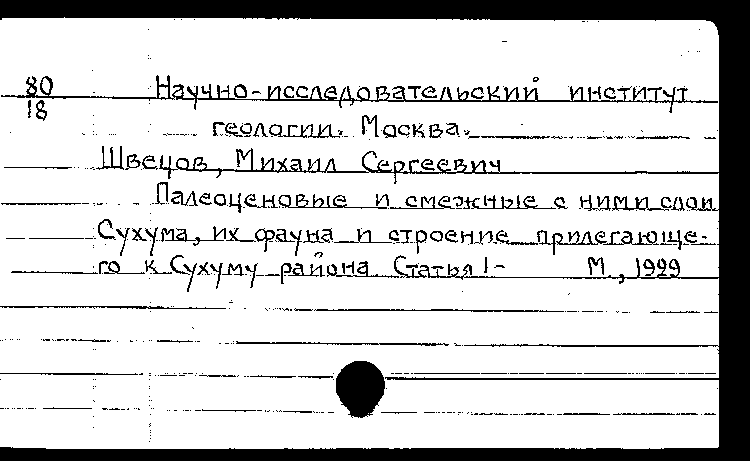 80 Научно-исследовательский институт
18 геологии. Москва.
Швецов, Михаил Сергеевич
Палеоценовые и смежные с ними слои
Сухума, их фауна и строение прилегающе-
го к Сухуму района Статья 1- М., 1929